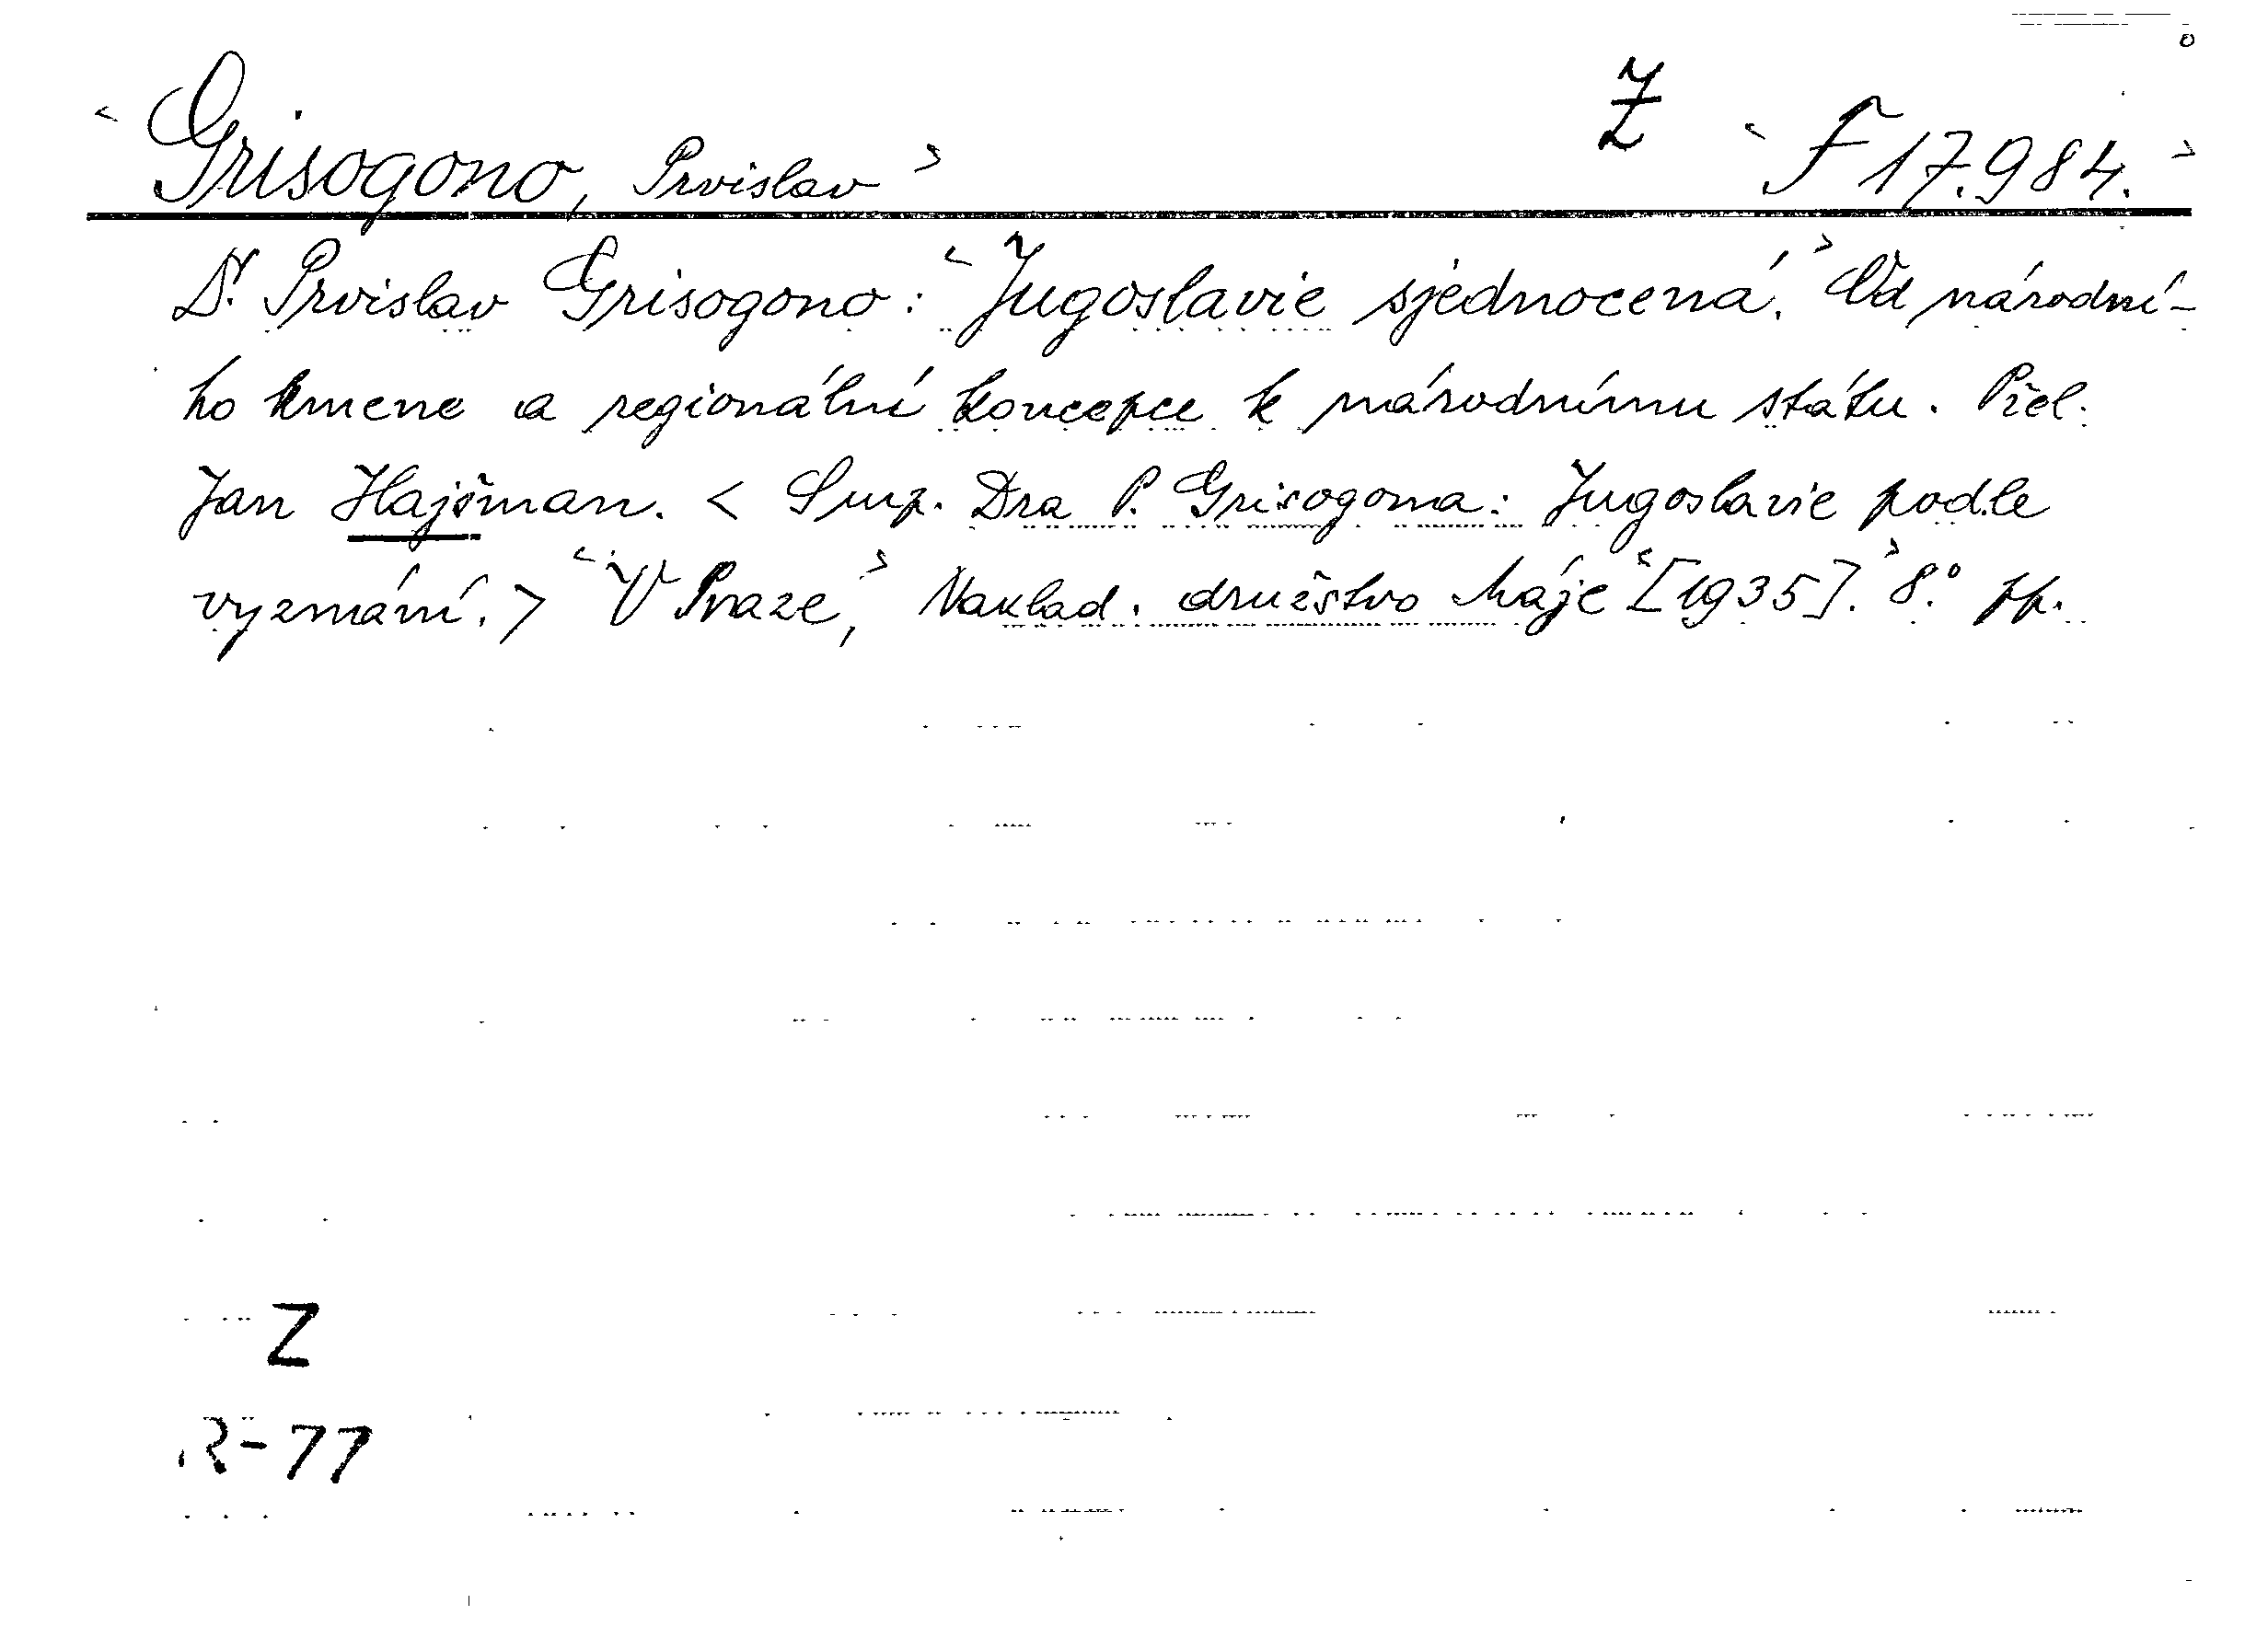 < Grisogono, Prvislav > Z < F 17.984. >
Dr. Prvislav Grisogono: < Jugoslavie sjednocená. > Od národní-
ho kmene a regionální koncepce k národnímu státu. Přel.
Jan Hajšman. < Srup. Dra P. Grisogona: Jugoslavie podle
vyznání. > < V Praze, > Naklad. družstvo Máje < [1935]. > 8.°
Z
R-77